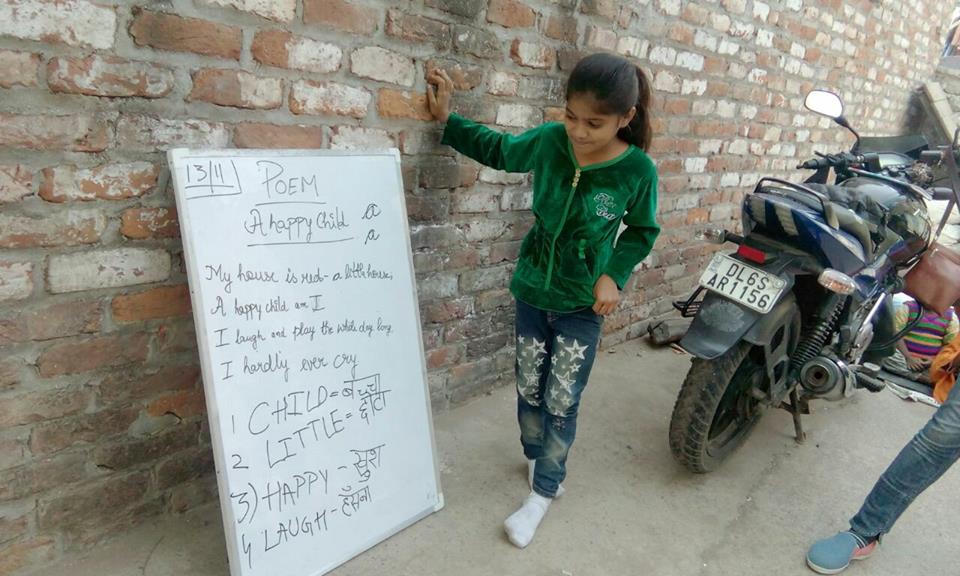 13/11
POEM
A happy Child
a
a
My house is red - a little house,
A happy child am I
I laugh and play the whole day long,
I hardly ever cry
1 CHILD = बच्चा
2 LITTLE = छोटा
3) HAPPY - खुश
4 LAUGH - हँसना
DL6S
AR1156